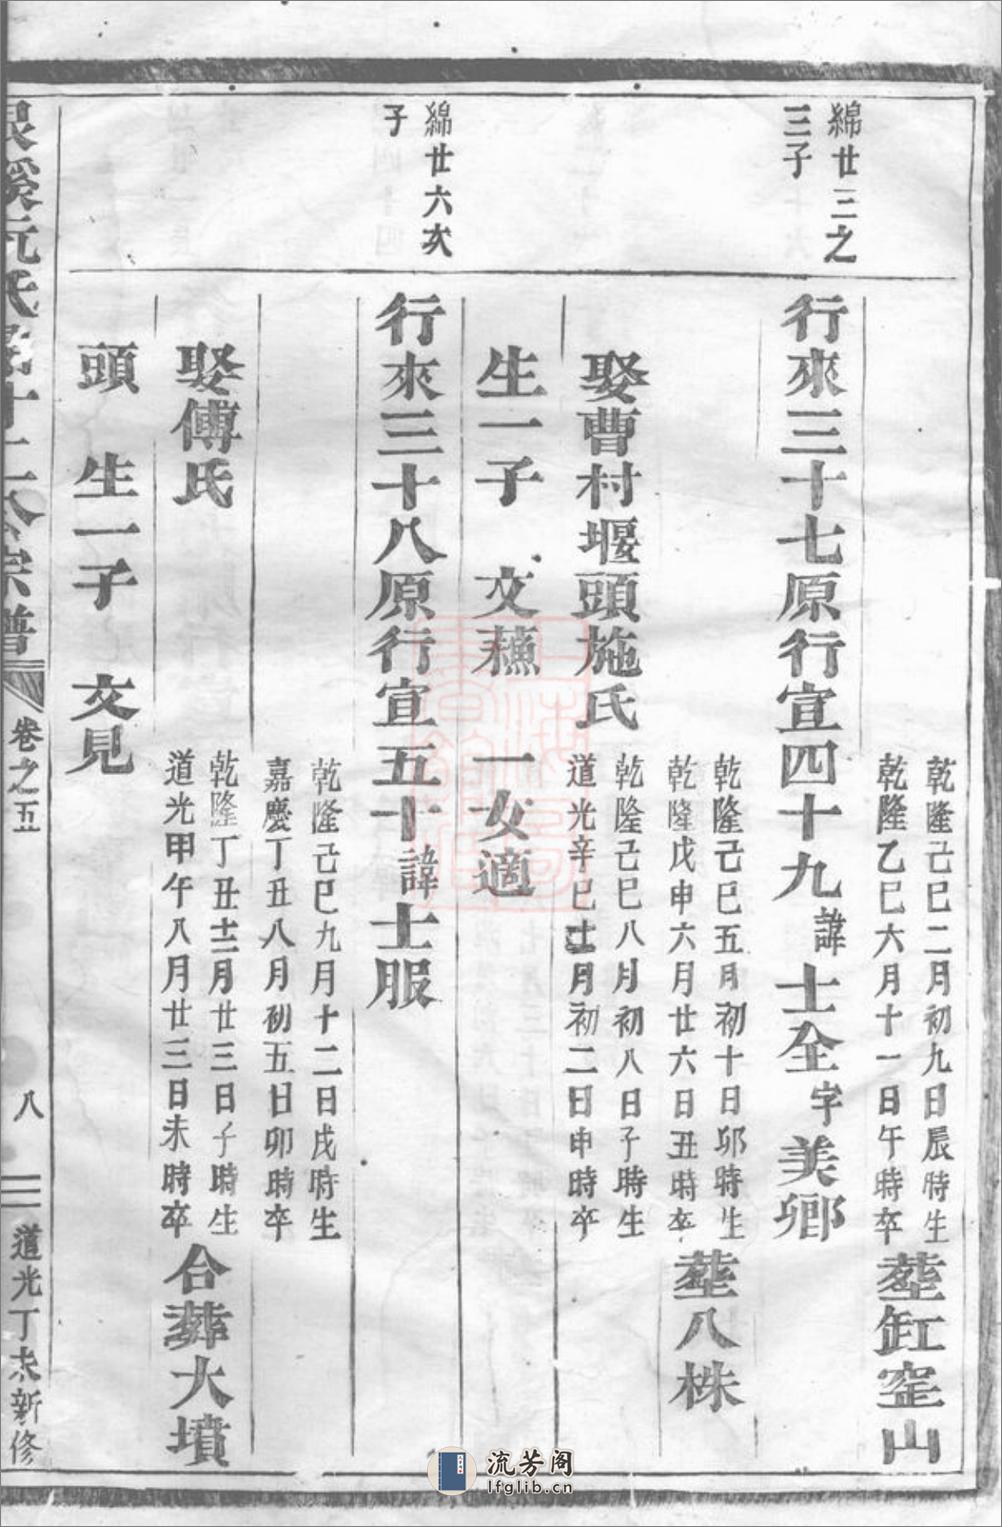 乾隆己巳二月初九日辰時生
乾隆乙巳六月十一日午時卒
塟缸窑山
綿廿三之
三子
行來三十七原行宣四十九諱士全字美鄉
乾隆己巳五月初十日卯時生
乾隆戊申六月廿六日丑時卒
塟八株
娶曹村堰頭施氏
乾隆己巳八月初八日子時生
道光辛巳十二月初二日申時卒
生一子 文蘓 一女適
綿廿六次
子
行來三十八原行宣五十諱士服
乾隆己巳九月十二日戌時生
嘉慶丁丑八月初五日卯時卒
娶傅氏
乾隆丁丑十二月廿三日子時生
道光甲午八月廿三日未時卒
合葬大墳
頭 生一子 文見
溪阮氏 十二公宗譜
卷之五
八
道光丁未新修
流芳阁
lfglib.cn